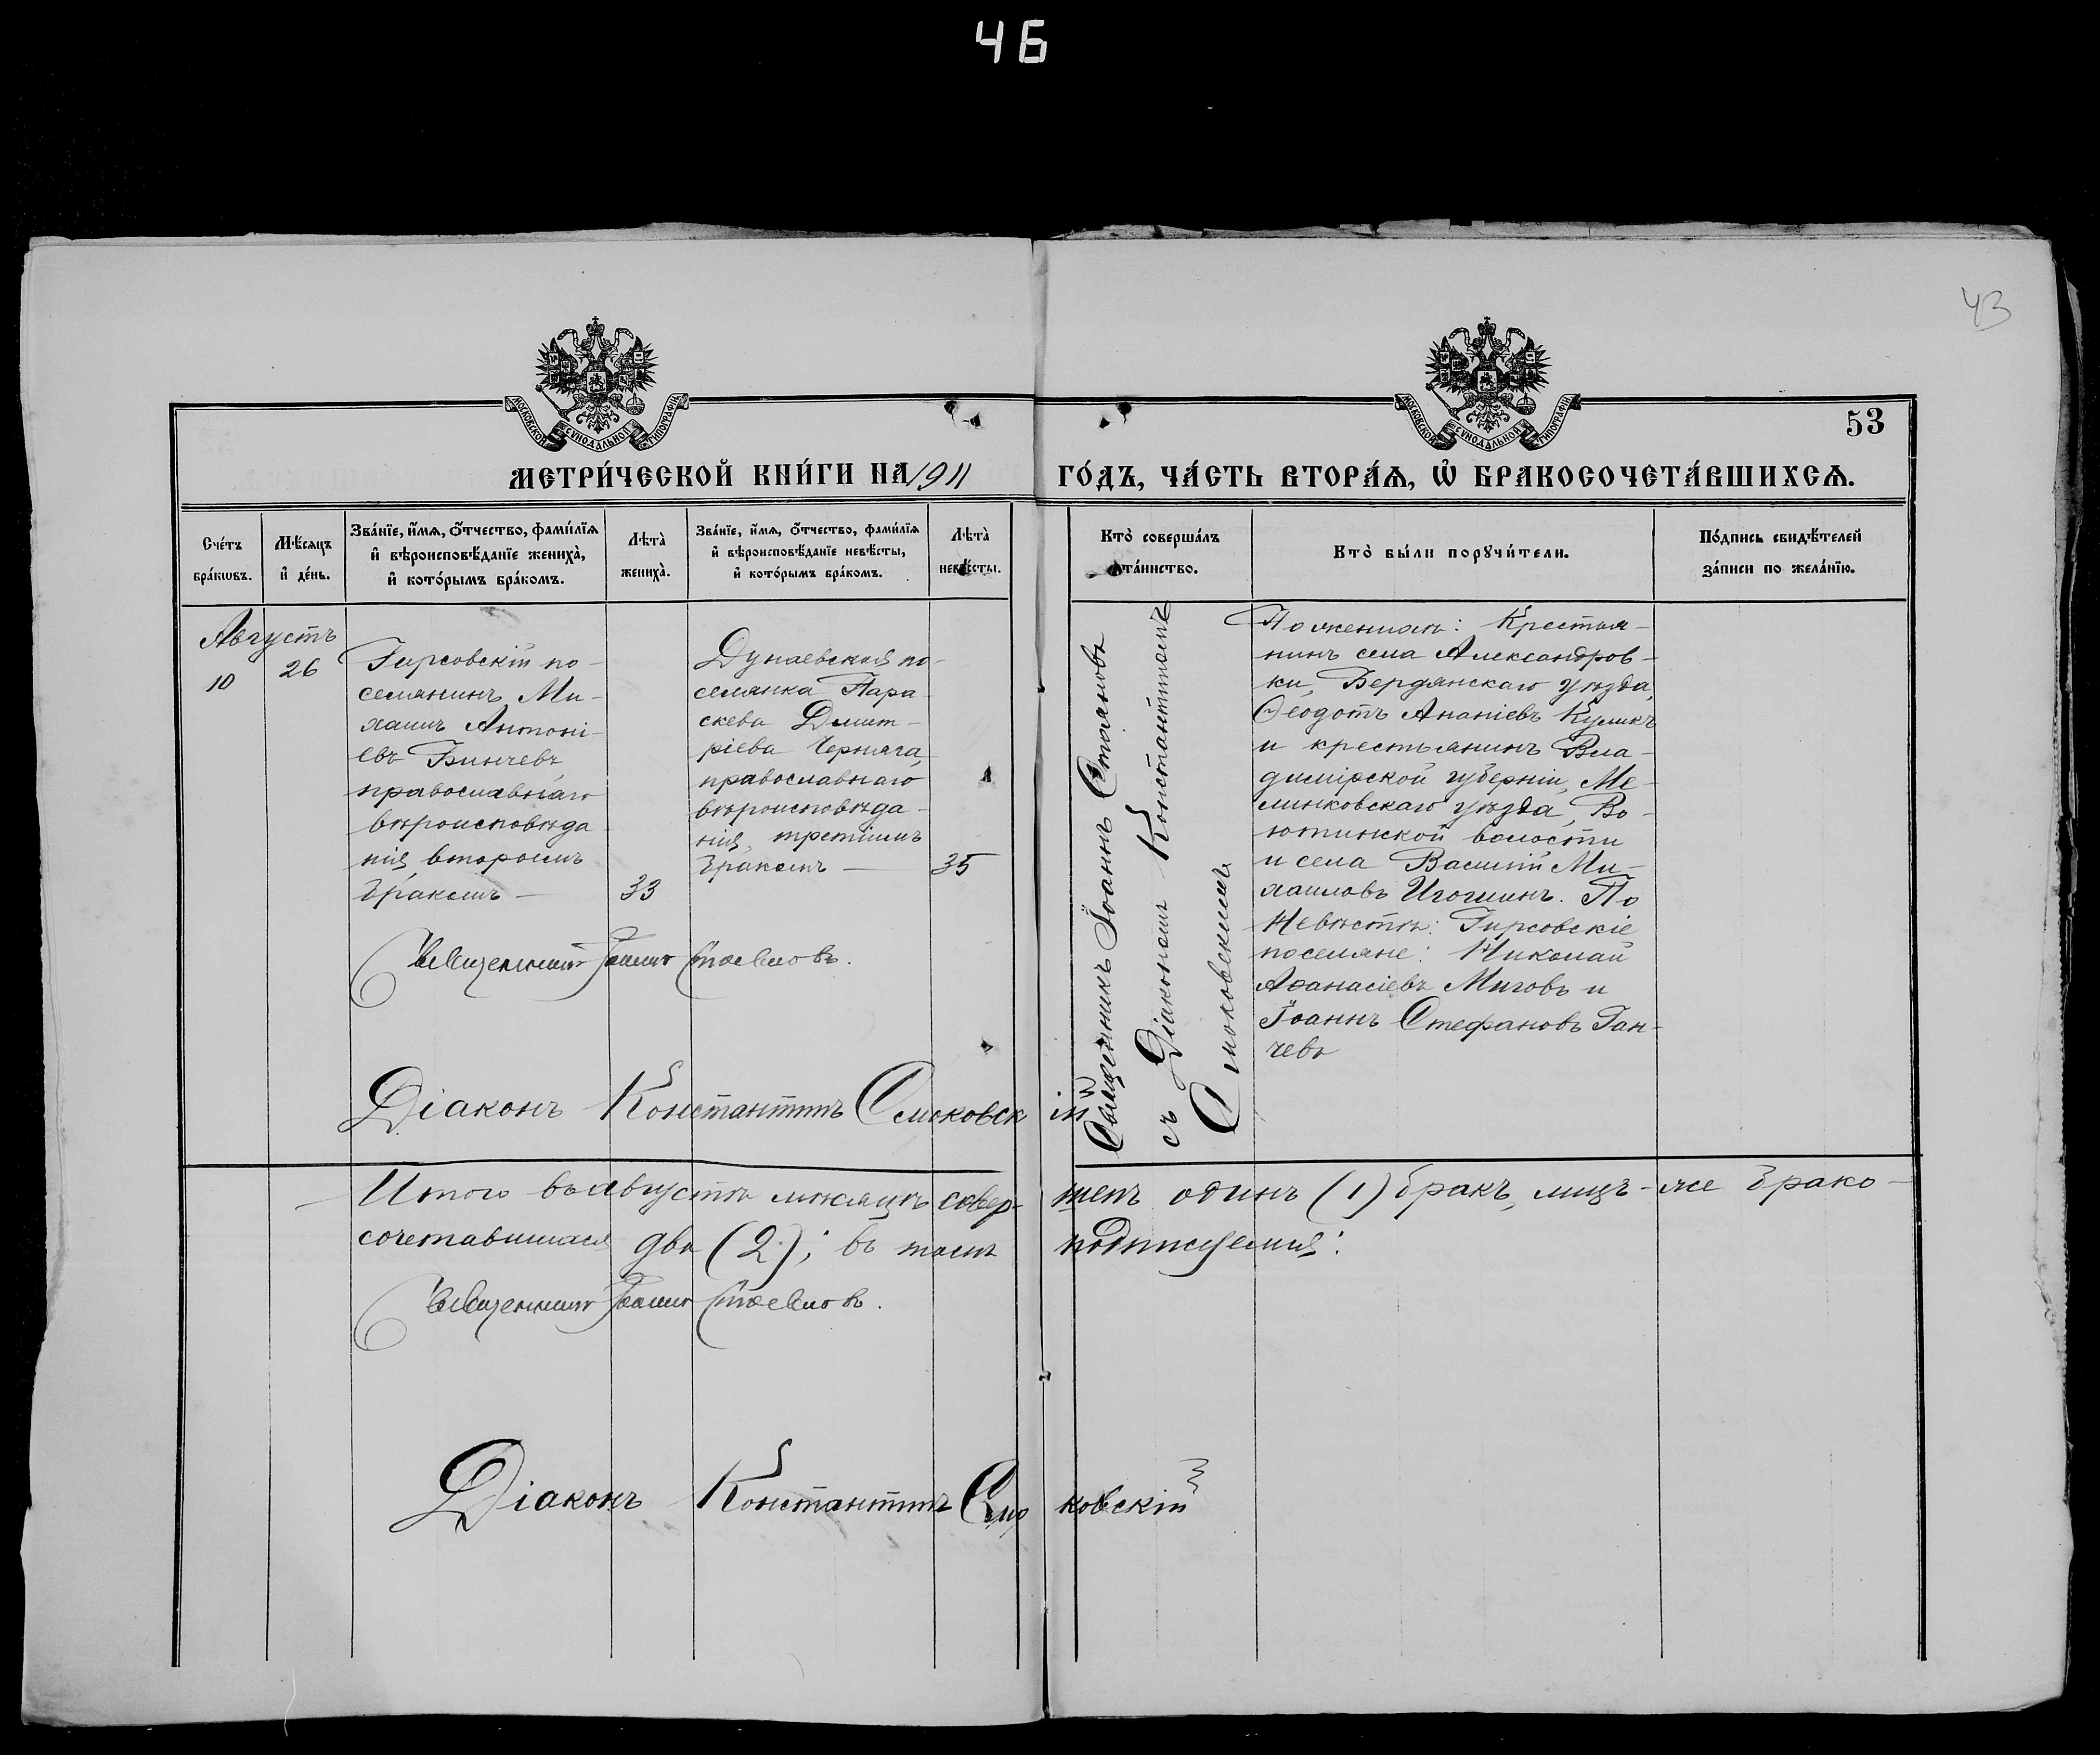 4Б
43
МОСКОВСКОЙ СУНОДАЛЬНОЙ ТИПОГРАФІИ
МОСКОВСКОЙ СУНОДАЛЬНОЙ ТИПОГРАФІИ
53
МЕТРИ́ЧЕСКОЙ КНИ́ГИ НА 1911 ГО́ДЪ, ЧА́СТЬ ВТОРА́Ѧ, Ѽ БРАКОСОЧЕТА́ВШИХСѦ.
Сче́тъ
бра́кѡвъ.
Мѣ́сяцъ
и҆ де́нь.
Зва́нїе, и҆́мя, ѻ҆́тчество, фами́лїя
и҆ вѣроисповѣ́данїе жениха̀,
и҆ кото́рымъ бра́комъ.
Лѣта̀
жениха̀.
Зва́нїе, и҆́мя, ѻ҆́тчество, фами́лїя
и҆ вѣроисповѣ́данїе невѣ́сты,
и҆ кото́рымъ бра́комъ.
Лѣта̀
невѣ́сты.
Кто̀ соверша́лъ
та́инство.
Кто̀ бы́ли порꙋчи́тели.
По́дпись свидѣ́телей
за́писи по жела́нїю.
Августъ
10
26
Гирсовскій по-
селянинъ Ми-
хаилъ Антоні-
евъ Бинчевъ,
православнаго
вѣроисповѣда
нія, вторымъ
бракомъ —
33
Священникъ Іоаннъ Стояновъ.
Дунаевская по-
селянка Пара
скева Дмит-
ріева Черняга,
православнаго
вѣроисповѣда-
нія, третіимъ
бракомъ —
35
Священникъ Іоаннъ Стояновъ
съ Діакономъ Константиномъ
Смоковскимъ
По женихѣ: Крестья-
нинъ села Александров-
ки, Бердянскаго уѣзда,
Ѳеодотъ Ананіевъ Куликъ
и крестьянинъ Вла-
димірской губерніи, Ме-
ленковскаго уѣзда, Во-
ютинской волости
и села Василій Ми-
хаиловъ Игошинъ. По
Невѣстѣ: Гирсовскіе
поселяне: Николай
Аѳанасіевъ Миговъ и
Іоаннъ Стефановъ Ган-
чевъ
Діаконъ Константинъ Смоковскій
Итого въ августѣ мѣсяцѣ совер- шенъ одинъ (1) бракъ, лицъ-же брако-
сочетавшихся два (2); въ томъ подписуемся:
Священникъ Іоаннъ Стояновъ.
Діаконъ Константинъ Смоковскій